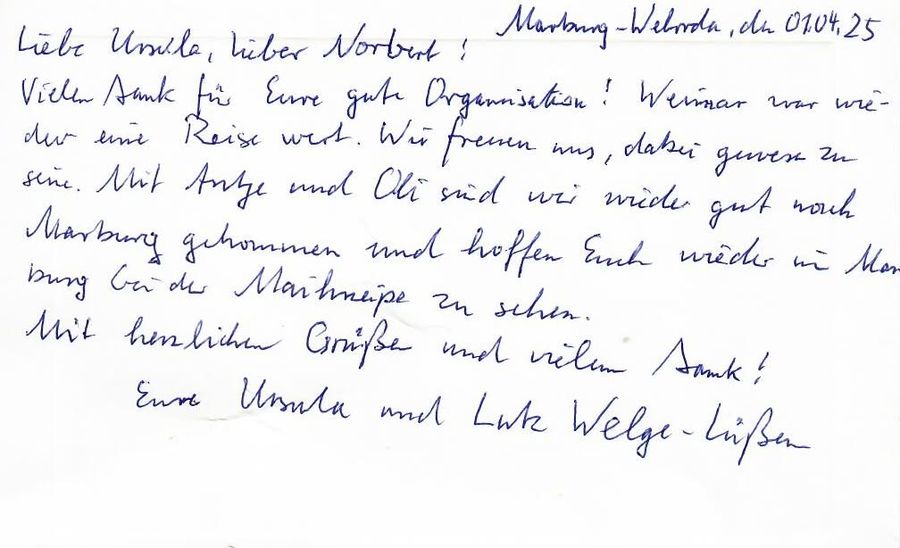 Marburg-Wehrda, den 01.04.25
Liebe Ursula, Lieber Norbert!
Vielen Dank für Eure gute Organnisation! Weimar war wie-
der eine Reise wert. Wir freuen uns, dabei gewesen zu
sein. Mit Antje und Oli sind wir wieder gut nach
Marburg gekommen und hoffen Euch wieder in Mar
burg bei der Maikneipe zu sehen.
Mit herzlichen Grüßen und vielem Dank!
Eure Ursula und Lutz Welge-Lüßen